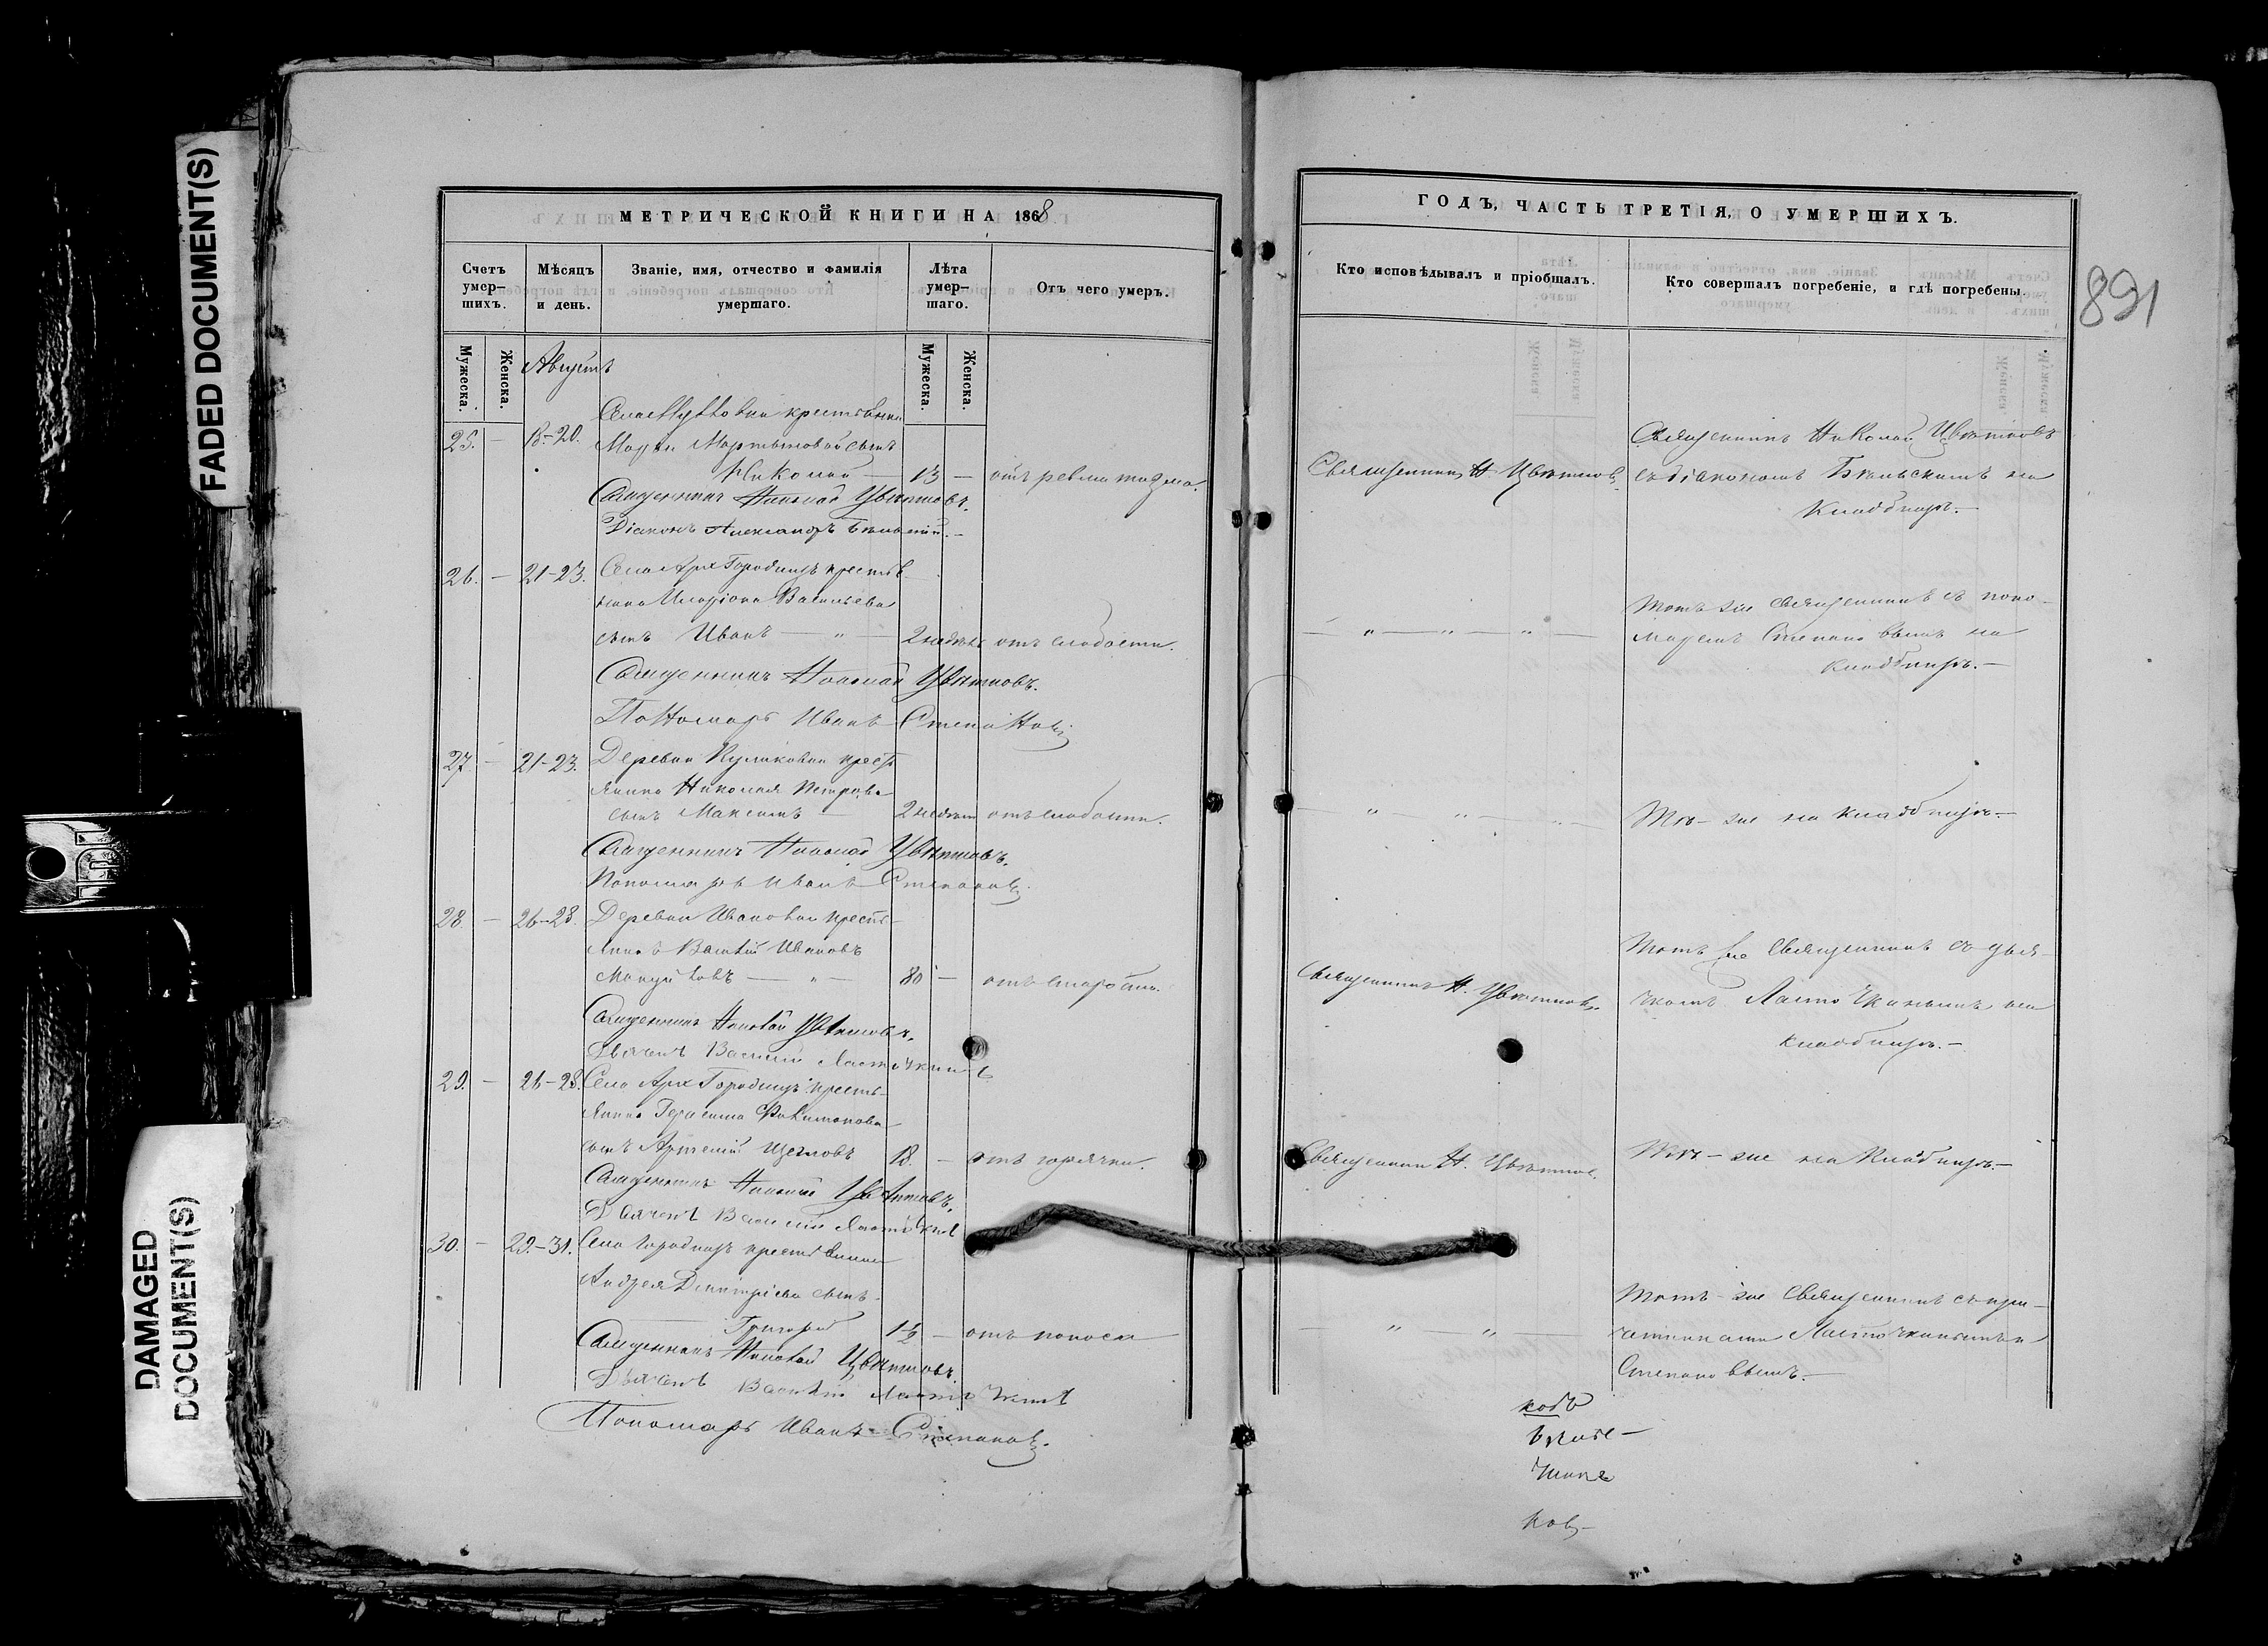 FADED DOCUMENT(S)
DAMAGED
DOCUMENT(S)
МЕТРИЧЕСКОЙ КНИГИ НА 1868
Счетъ умер-
шихъ.
Мѣсяцъ
и день.
Званіе, имя, отчество и фамилія
умершаго.
Лѣта
умер-
шаго.
Отъ чего умеръ.
Мужеска.
Женска.
Августъ
Мужеска.
Женска.
крестьянки
25. — 18-20. Марьи Мартыновой сынъ
Николай — 13 — отъ ревматизма.
Священникъ Николай Цвѣтковъ.
Діаконъ Александръ Бѣльскій.
26. — 21-23. Села Арх Городищъ крестья-
нина Иларіона Васильева
сынъ Иванъ — „ — 2 недѣль отъ слабости.
Священникъ Николай Цвѣтковъ.
Пономарь Иванъ Степановъ
27. — 21-23. Деревни Куликовки крест
янина Николая Петрова
сынъ Максимъ — 2 недѣли отъ слабости.
Священникъ Николай Цвѣтковъ.
Пономарь Иванъ Степановъ.
28. — 26-28. Деревни Ивановки кресть-
янинъ Василій Ивановъ
— „ — 80 — отъ старости.
Священникъ Николай Цвѣтковъ.
Дьячекъ Василій Ласточкинъ
29. — 26-28. Села Арх Городищъ кресть-
янина Герасима
сынъ Артемій Щегловъ 18. — отъ горячки.
Священникъ Николай Цвѣтковъ.
Дьячекъ Василій Ласточкинъ
30. — 29-31. Села Городищъ крестьянина
Андрея Дмитріева сынъ
Григорій 1½ — отъ поноса
Священникъ Николай Цвѣтковъ.
Дьячекъ Василій Ласточкинъ
Пономарь Иванъ Степановъ.
ГОДЪ, ЧАСТЬ ТРЕТІЯ, О УМЕРШИХЪ.
Кто исповѣдывалъ и пріобщалъ.
Кто совершалъ погребеніе, и гдѣ погребены.
891
Священникъ Николай Цвѣтковъ
Священникъ Н. Цвѣтковъ. съ діакономъ Бѣльскимъ на
кладбищѣ.—
Тотъ же священникъ съ поно-
— „ — „ — „ — маремъ Степановымъ на
кладбищѣ.—
— „ — „ — „ — Тѣ-же на кладбищѣ.—
Тотъ же священникъ съ дья-
Священникъ Н. Цвѣтковъ. чкомъ Ласточкинымъ на
кладбищѣ.—
Священникъ Н. Цвѣтковъ. Тѣ-же на кладбищѣ.—
Тотъ-же священникъ съ при-
— „ — „ — четниками Ласточкинымъ и
Степановымъ.—